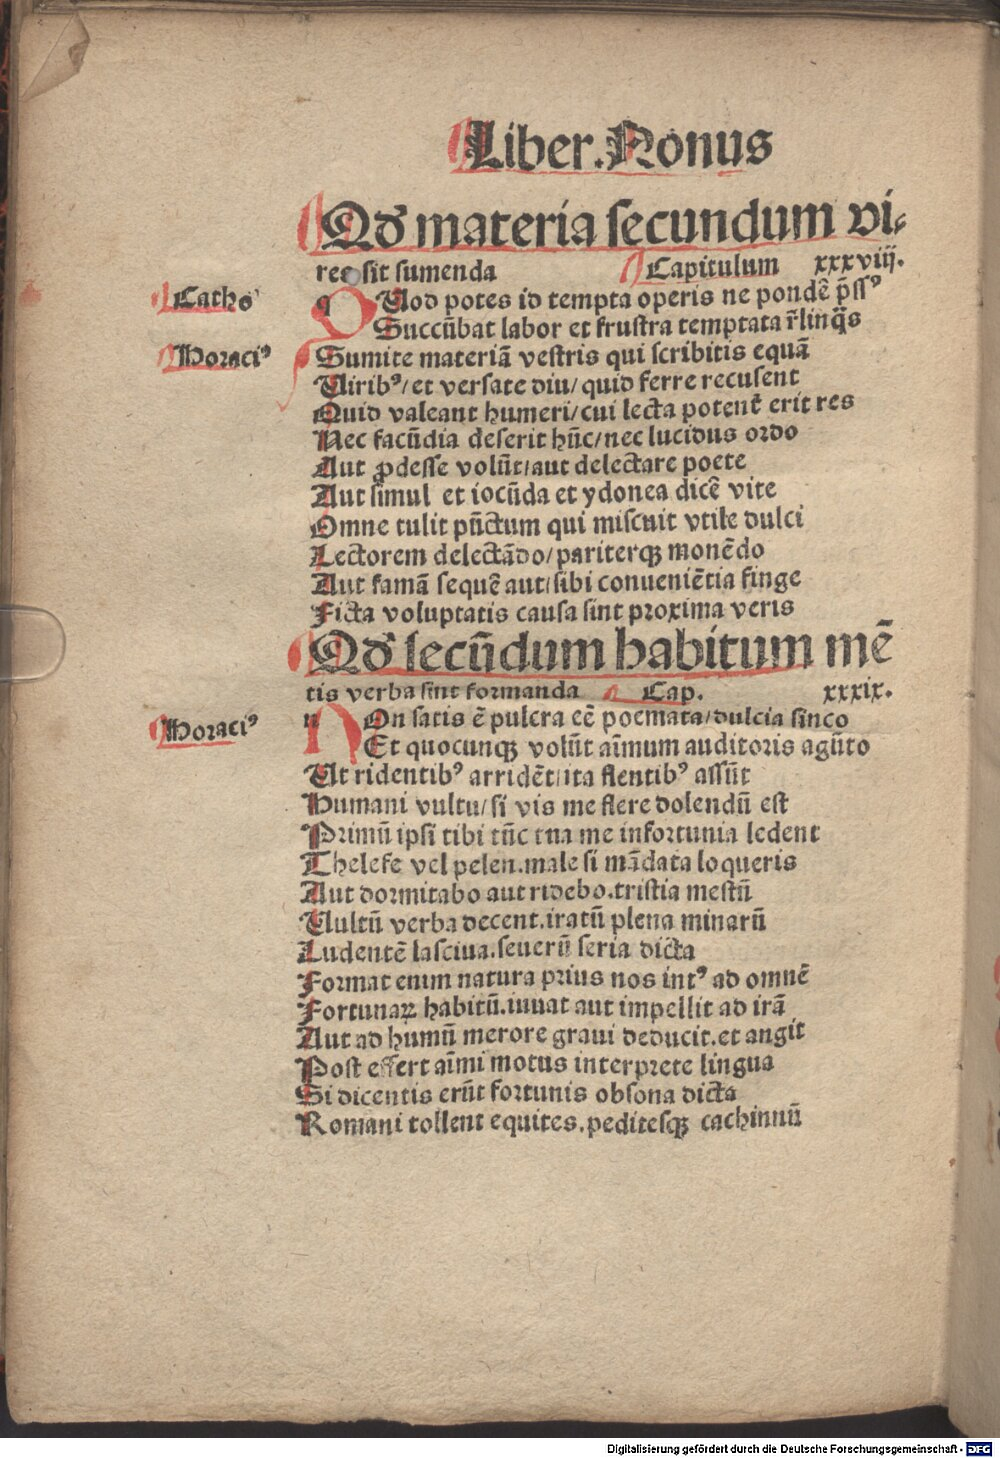 Liber.Nonus
Qꝺ materia secundum vi⸗
res sit sumenda Capitulum xxxviij.
Catho
qUod potes id tempta operis ne pondē p̄ssꝰ
Succūbat labor et frustra temptata r̄linq̄s
Horaciꝰ
Sumite materiā vestris qui scribitis equā
Viribꝰ/et versate diu/quid ferre recusent
Quid valeant humeri/cui lecta potent̄ erit res
Nec facūdia deserit hūc/nec lucidus ordo
Aut ꝓdesse volūt/aut delectare poete
Aut simul et iocūda et ydonea dicē vite
Omne tulit pūctum qui miscuit vtile dulci
Lectorem delectādo/pariterqꝫ monēdo
Aut famā sequē aut/sibi conueniētia finge
Ficta voluptatis causa sint proxima veris
Qꝺ secūdum habitum mē
tis verba sint formanda Cap. xxxix.
Horaciꝰ
nOn satis ē pulcra eē poemata/dulcia sinco
Et quocunqꝫ volūt aīmum auditoris agūto
Ut ridentibꝰ arridēt/ita flentibꝰ assūt
Humani vultu/si vis me flere dolendū est
Primū ipsi tibi tūc tua me infortunia ledent
Thelefe vel pelen.male si mādata loqueris
Aut dormitabo aut ridebo.tristia mestū
Vultū verba decent.iratū plena minarū
Ludentē lasciua.seuerū seria dicta
Format enim natura prius nos intꝰ ad omnē
Fortunaꝝ habitū.iuuat aut impellit ad irā
Aut ad humū merore graui deducit.et angit
Post effert aīmi motus interprete lingua
Si dicentis erūt fortunis obsona dicta
Romani tollent equites.peditesqꝫ cachinnū
Digitalisierung gefördert durch die Deutsche Forschungsgemeinschaft - DFG